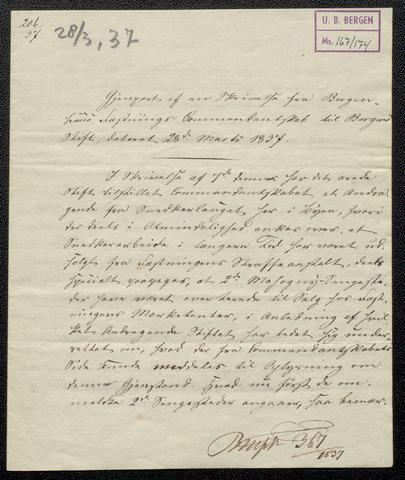 206
37
28/3, 37
U. B. BERGEN
Ms. 167/174
Gjenpart af en Skrivelse fra Bergen-
huus Fæstnings Commandantskab til Bergens
Stift, dateret 28de Marts 1837.
I Skrivelse af 7de dennes har det ærede
Stift tilstillet Commandantskabet et Andra-
gende fra Snedkerlauget her i Byen, hvori
der deels i Almindelighed ankes over, at
Snedkerarbeide i længere Tid har været ud-
solgt fra Fæstningens Straffeanstalt, deels
specielt paaanges, at 2de Mahogny-Sengesteder
der have været averterede til Salg hos Fæst-
ningens Marketenter, i Anledning af hvil-
ket Andragende Stiftet har bedet sig under-
rettet om, hvad der fra Commandantskabets
Side kunde meddeles til Oplysning om
denne Gjenstand. Hvad nu først de om-
meldte 2de Sengesteder angaaer, saa bemær-
367
1837